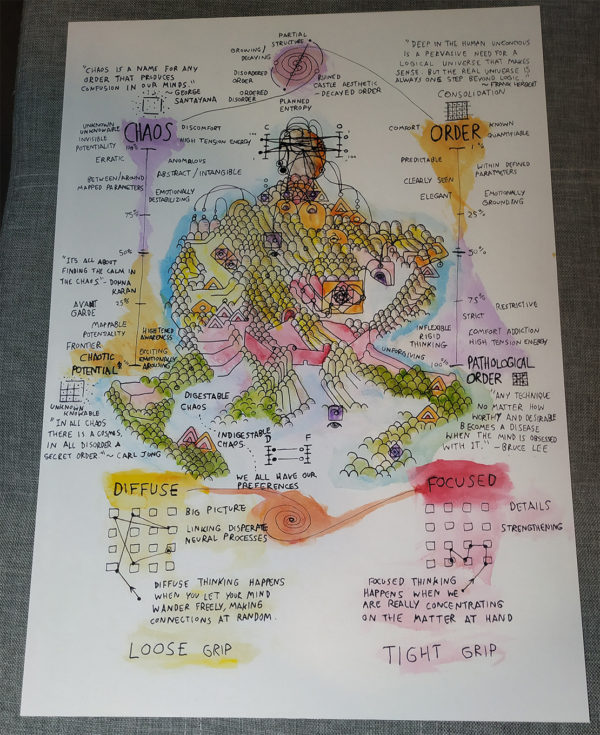 PARTIAL
STRUCTURE
GROWING/
DECAYING
DISORDERED
ORDER
ORDERED
DISORDER
PLANNED
ENTROPY
RUINED
CASTLE AESTHETIC
- DECAYED ORDER
"CHAOS IS A NAME FOR ANY
ORDER THAT PRODUCES
CONFUSION IN OUR MINDS."
~ GEORGE
SANTAYANA
"DEEP IN THE HUMAN UNCONCIOUS
IS A PERVASIVE NEED FOR A
LOGICAL UNIVERSE THAT MAKES
SENSE. BUT THE REAL UNIVERSE IS
ALWAYS ONE STEP BEYOND LOGIC."
~ FRANK HERBERT
CONSOLIDATION
UNKNOWN
UNKNOWABLE
INVISIBLE
POTENTIALITY
CHAOS
DISCOMFORT
HIGH TENSION ENERGY
100%
ERRATIC
ANOMALOUS
ABSTRACT/INTANGIBLE
BETWEEN/AROUND
MAPPED PARAMETERS
EMOTIONALLY
DESTABILIZING
75%
50%
"IT'S ALL ABOUT
FINDING THE CALM IN
THE CHAOS." - DONNA
KARAN
AVANT
GARDE
25%
MAPPABLE
POTENTIALITY
HIGHTENED
AWARENESS
FRONTIER
CHAOTIC
POTENTIAL
EXCITING
EMOTIONALLY
AROUSING
UNKNOWN
KNOWABLE
"IN ALL CHAOS
THERE IS A COSMOS,
IN ALL DISORDER A
SECRET ORDER." ~ CARL JUNG
C
O
COMFORT
ORDER
KNOWN
QUANTIFIABLE
1%
PREDICTABLE
WITHIN DEFINED
PARAMETERS
CLEARLY SEEN
ELEGANT
EMOTIONALLY
GROUNDING
25%
50%
75%
RESTRICTIVE
STRICT
INFLEXIBLE
RIGID
THINKING
COMFORT ADDICTION
HIGH TENSION ENERGY
UNFORGIVING
100%
PATHOLOGICAL
ORDER
"ANY TECHNIQUE
NO MATTER HOW
WORTHY AND DESIRABLE
BECOMES A DISEASE
WHEN THE MIND IS OBSESSED
WITH IT." - BRUCE LEE
DIGESTABLE
CHAOS
INDIGESTABLE
CHAOS
D
F
WE ALL HAVE OUR
PREFERENCES
DIFFUSE
BIG PICTURE
LINKING DISPERATE
NEURAL PROCESSES
DIFFUSE THINKING HAPPENS
WHEN YOU LET YOUR MIND
WANDER FREELY, MAKING
CONNECTIONS AT RANDOM.
LOOSE GRIP
FOCUSED
DETAILS
STRENGTHENING
FOCUSED THINKING
HAPPENS WHEN WE
ARE REALLY CONCENTRATING
ON THE MATTER AT HAND
TIGHT GRIP